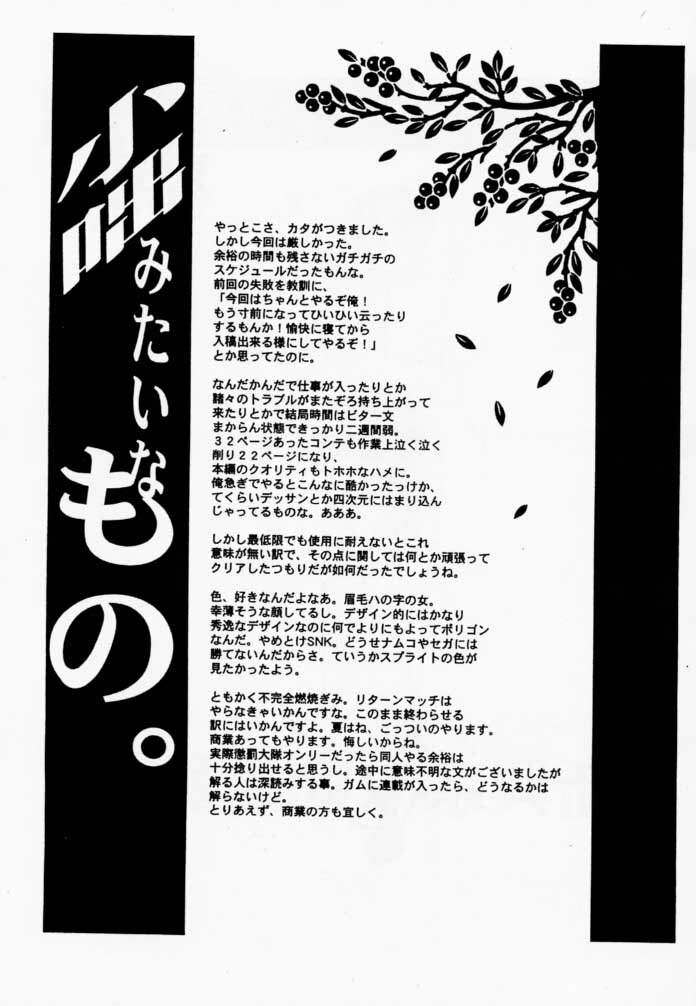 みたいなもの。
やっとこさ、カタがつきました。
しかし今回は厳しかった。
余裕の時間も残さないガチガチの
スケジュールだったもんな。
前回の失敗を教訓に、
「今回はちゃんとやるぞ俺！
もう寸前になってひいひい云ったり
するもんか！愉快に寝てから
入稿出来る様にしてやるぞ！」
とか思ってたのに。
なんだかんだで仕事が入ったりとか
諸々のトラブルがまたぞろ持ち上がって
来たりとかで結局時間はビター文
まからん状態できっかり二週間弱。
３２ページあったコンテも作業上泣く泣く
削り２２ページになり、
本編のクオリティもトホホなハメに。
俺急ぎでやるとこんなに酷かったっけか、
てくらいデッサンとか四次元にはまり込ん
じゃってるものな。あああ。
しかし最低限でも使用に耐えないとこれ
意味が無い訳で、その点に関しては何とか頑張って
クリアしたつもりだが如何だったでしょうね。
色、好きなんだよなあ。眉毛ハの字の女。
幸薄そうな顔してるし。デザイン的にはかなり
秀逸なデザインなのに何でよりにもよってポリゴン
なんだ。やめとけSNK。どうせナムコやセガには
勝てないんだからさ。ていうかスプライトの色が
見たかったよう。
ともかく不完全燃焼ぎみ。リターンマッチは
やらなきゃいかんですな。このまま終わらせる
訳にはいかんですよ。夏はね、ごっついのやります。
商業あってもやります。悔しいからね。
実際懲罰大隊オンリーだったら同人やる余裕は
十分捻り出せると思うし。途中に意味不明な文がございましたが
解る人は深読みする事。ガムに連載が入ったら、どうなるかは
解らないけど。
とりあえず、商業の方も宜しく。